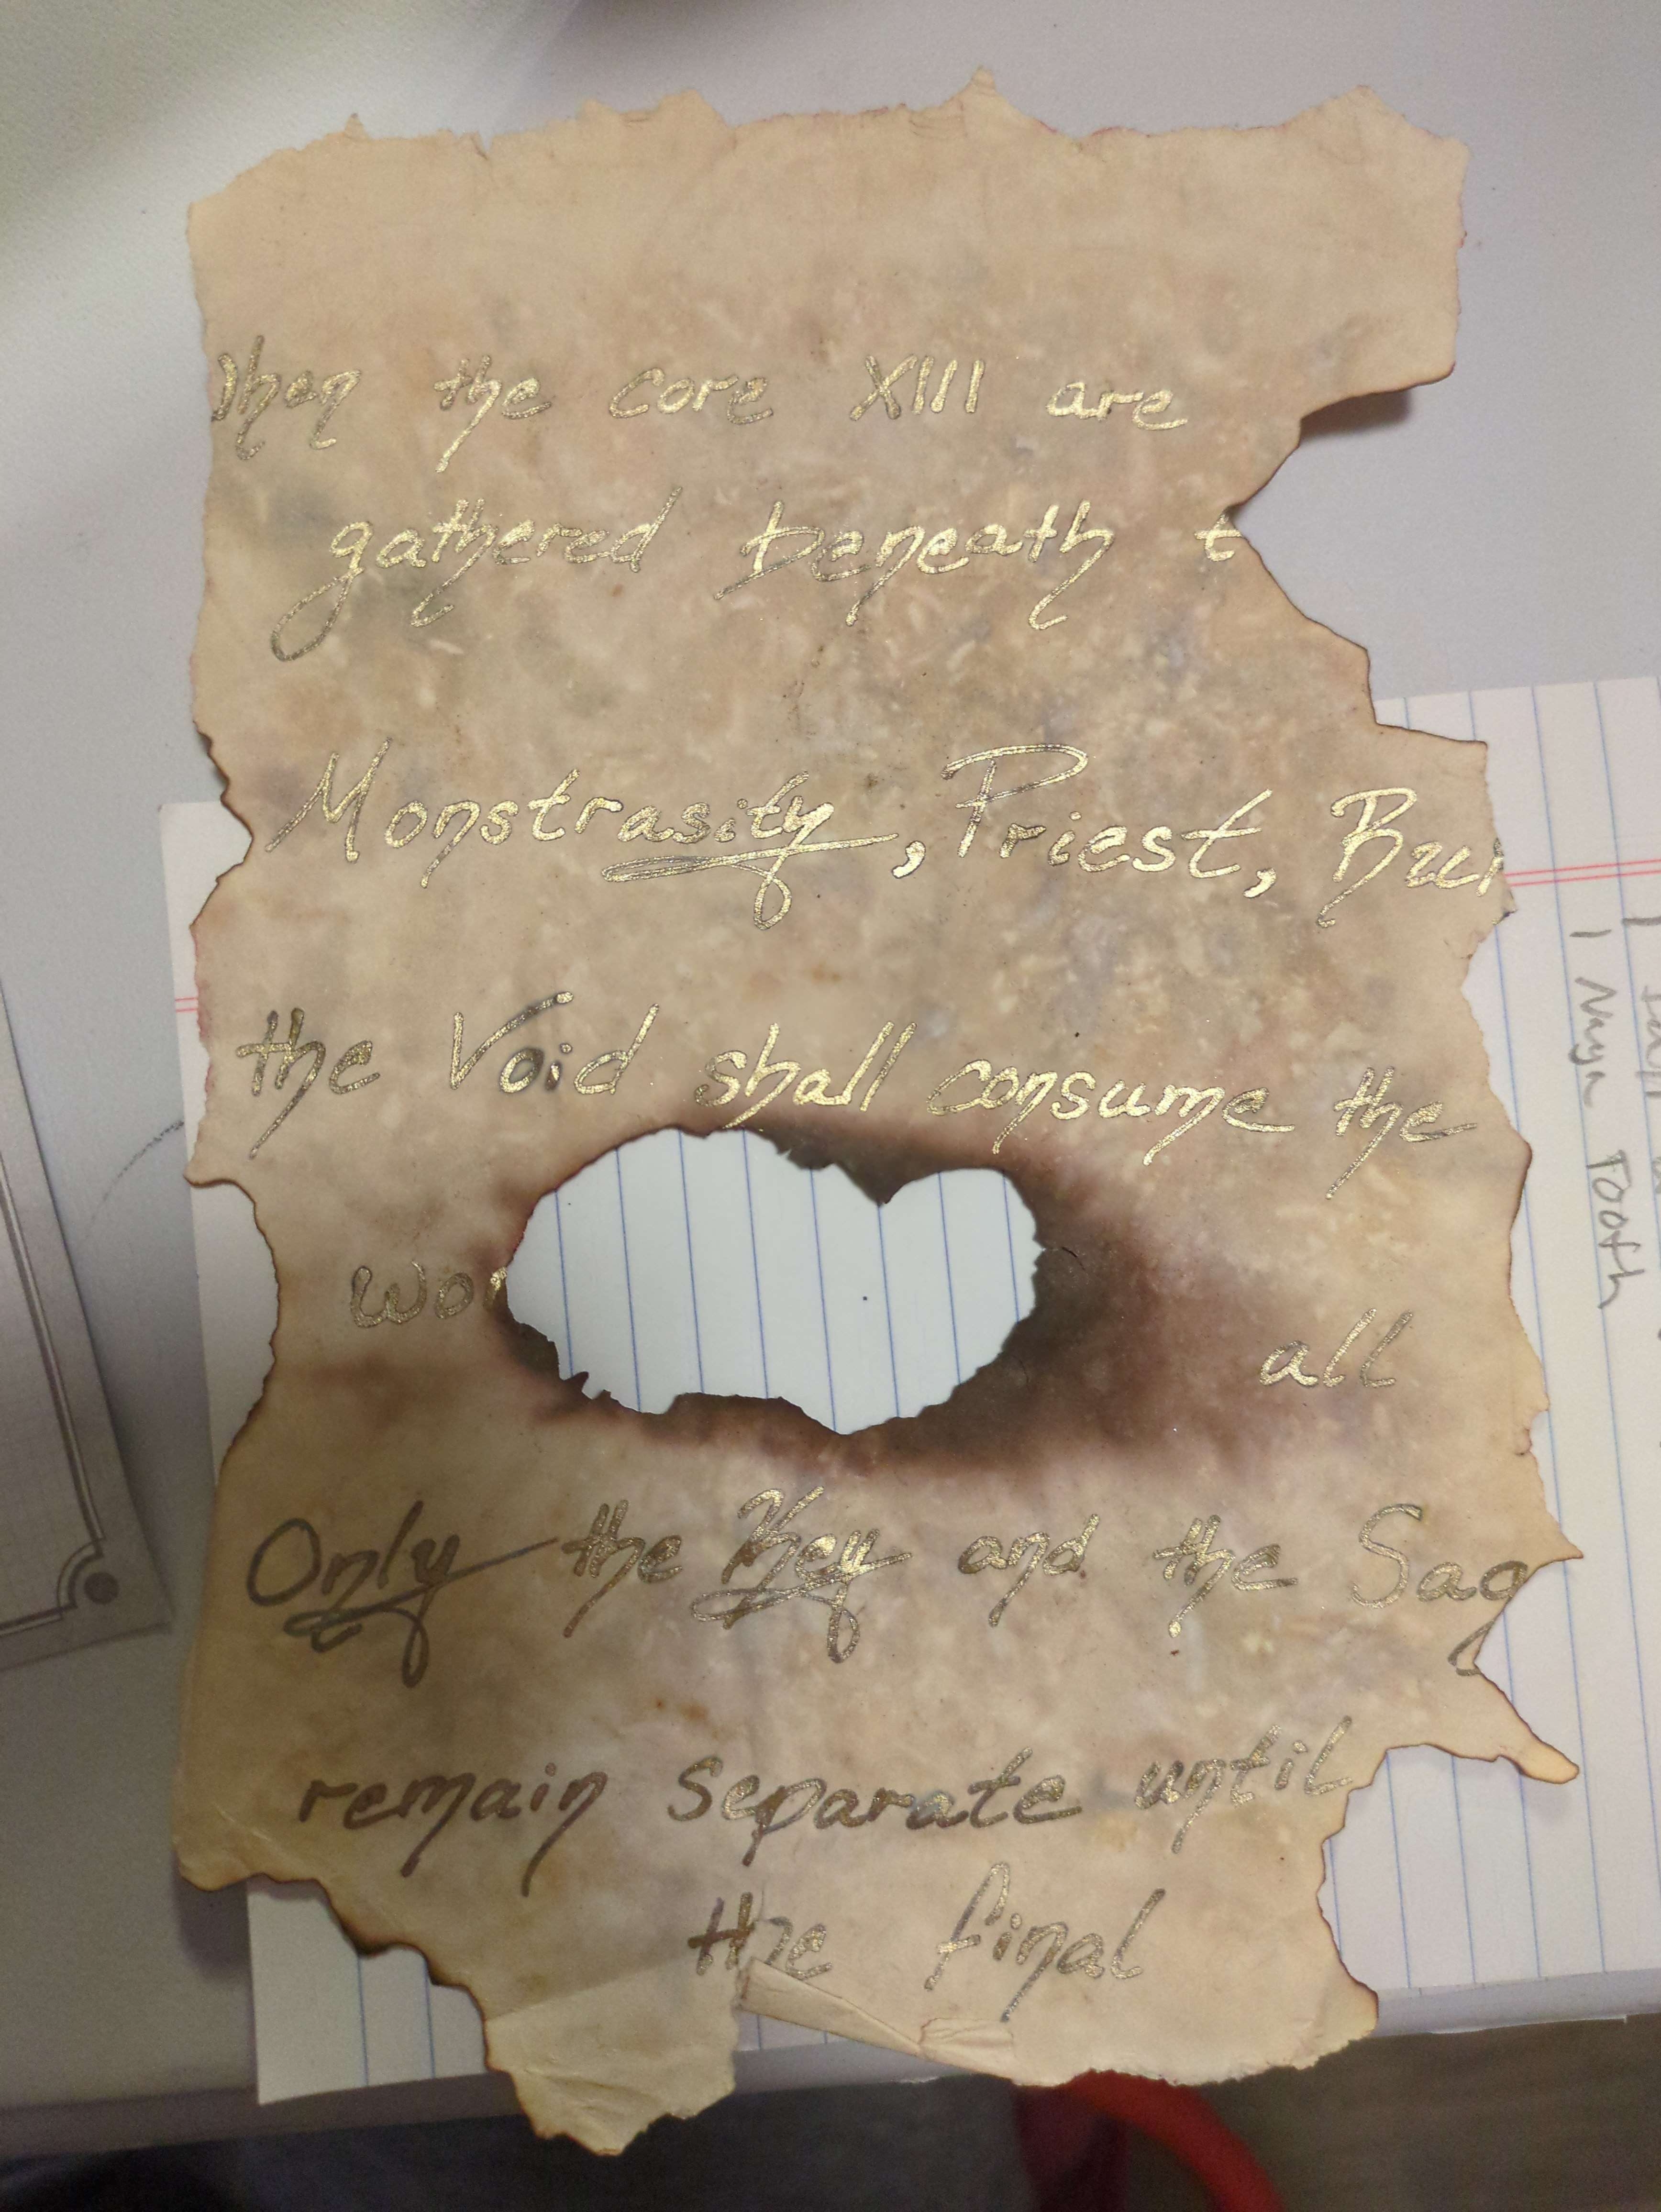 When the core XIII are
gathered beneath t
Monstrasity, Priest, Bur
the Void shall consume the
wor all
Only the Key and the Sag
remain separate until
the final
1 Naga Tooth